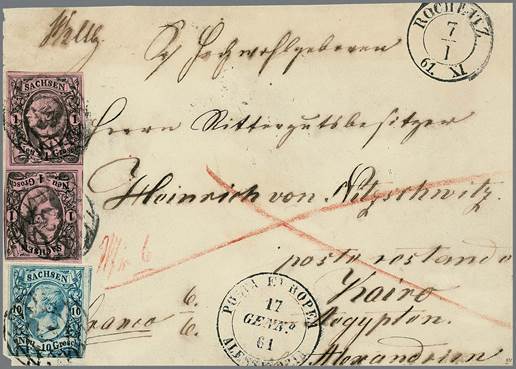 Sr Hochwohlgeboren
ROCHLITZ.
7
1
61. XI
Herrn Rittergutsbesitzer
SACHSEN
1 1
Neu Grosch
1 1
SACHSEN
Heinrich von Nitzschwitz.
poste restando
Kairo
Aegypten.
Alexandrien
franco
6.
6.
POSTA EUROPEA
17
GENN.º
61
ALESSANDRIA
SACHSEN
10 10
Neu 10 Grosch